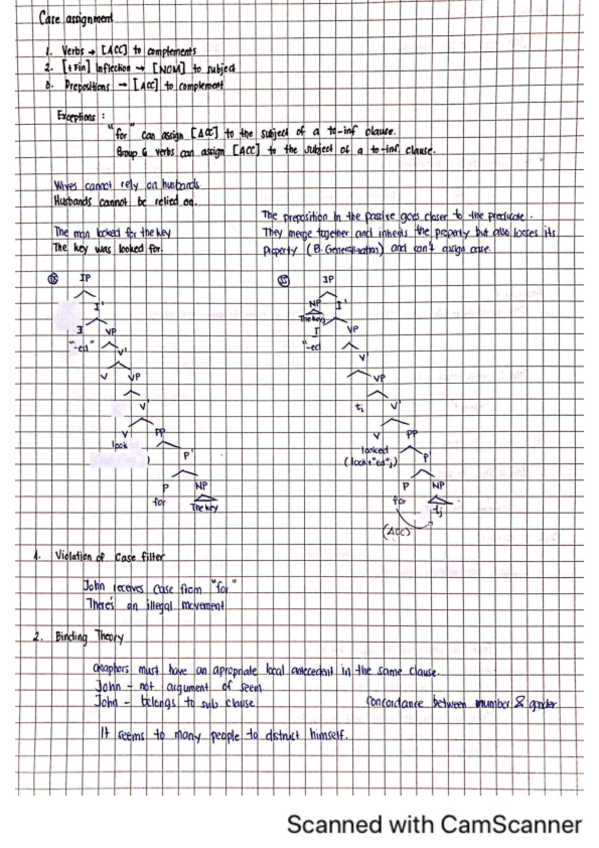 Case assignment
1. Verbs → [ACC] to complements
2. [+Fin] Inflection → [NOM] to subject
3. Prepositions → [Acc] to complement
Exceptions :
"for" can assign [ACC] to the subject of a to-inf clause.
Group 6 verbs can assign [ACC] to the subject of a to-inf. clause.
Wives cannot rely on husbands
Husbands cannot be relied on.
The man looked for the key
The key was looked for.
The preposition in the passive goes closer to the predicate.
They merge together and inherits the property but also looses its
property (B. Generalisation) and can't assign case.
DS IP
I'
I VP
"-ed" V'
V VP
V'
V PP
look P'
P NP
for The key
SS IP
NP I'
The key
I VP
"-ed V'
VP
V'
V PP
looked P'
(look+"ed")
P NP
for tj
(ACC)
1. Violation of Case filter
John receives Case from "for"
There's an illegal movement
2. Binding Theory
Anaphors must have an apropriate local antecedent in the same clause.
John - not argument of seem
John - belongs to sub clause
Concordance between number & gender
It seems to many people to distruct himself.
Scanned with CamScanner